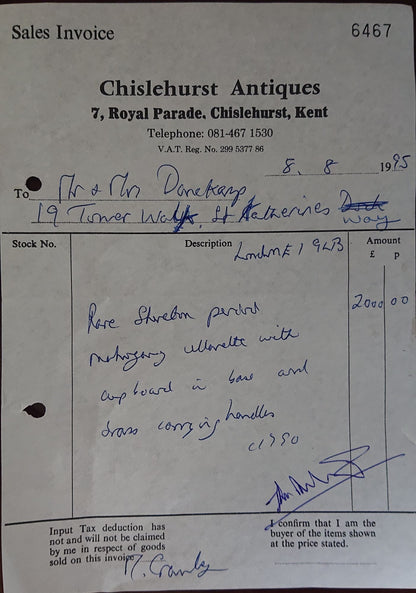 Sales Invoice 6467
Chislehurst Antiques
7, Royal Parade. Chislehurst, Kent
Telephone: 081-467 1530
V.A.T. Reg. No. 299 5377 86
8. 8 1995
To Mr & Mrs
19 Tower Walk, St Katherines Dock
Way
London E1 9LB
Stock No. Description Amount
£ p
Rare Sheraton period 2000 00
mahogany with
cupboard in base and
brass carrying handles
c1790
Input Tax deduction has
not and will not be claimed
by me in respect of goods
sold on this invoice
I confirm that I am the
buyer of the items shown
at the price stated.